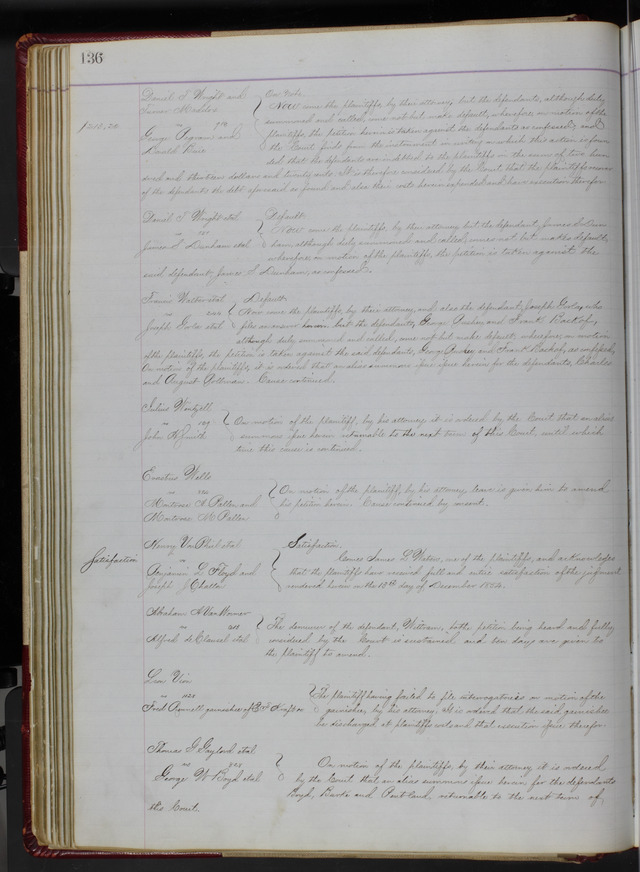 136
Daniel S. Wright and
James Meador
vs
George and
David
$210.20
On note.
Now come the plaintiffs, by their attorney, but the defendants, although duly
summoned and called, come not but make default, wherefore, on motion of the
plaintiffs, the petition herein is taken against the defendants as confessed; and
the Court finds from the instrument in writing on which this action is foun-
ded, that the defendants are indebted to the plaintiffs in the sum of two hun-
dred and dollars and twenty cents. It is therefore considered by the Court that the plaintiffs recover
of the defendants the debt aforesaid so found and also their costs herein expended, and have execution therefor.
Daniel S. Wright etal
vs
James S. Dunham etal
Default
Now come the plaintiffs by their attorney but the defendant James S. Dun-
ham, although duly summoned and called, comes not but makes default,
wherefore, on motion of the plaintiffs, the petition is taken against the
said defendant, James S. Dunham, as confessed.
Francis Walter etal
vs
Joseph etal
Default
Now come the plaintiffs, by their attorney, and also the defendant, Joseph who
files answer herein but the defendants, George and Frank Backof,
although duly summoned and called, come not but make default, wherefore, on motion
of the plaintiffs, the petition is taken against the said defendants, George and Frank Backof, as confessed.
On motion of the plaintiffs, it is ordered that an alias summons issue herein for the defendants, Charles
and August Cause continued.
Julius
vs
John Smith
On motion of the plaintiff, by his attorney, it is ordered by the Court that an alias
summons issue herein returnable to the next term of this Court, until which
time this cause is continued.
Erastus Wells
vs
Montrose A. Pallen and
Montrose M. Pallen
On motion of the plaintiff, by his attorney, leave is given him to amend
his petition herein. Cause continued by consent.
Satisfaction
Henry Van etal
vs
Benjamin L. Floyd and
Joseph J.
Satisfaction.
Comes James L. one of the plaintiffs, and acknowledges
that the plaintiffs have received full and entire satisfaction of the judgment
rendered herein on the day of December 1854.
Abraham Van Wormer
vs
Alfred de etal
The demurrer of the defendant, to the petition being heard and fully
considered by the Court is sustained, and ten days are given to
the plaintiff to amend.
Leon
vs
Fred garnishee of
The plaintiff having failed to file interrogatories on motion of the
garnishee, by his attorney, it is ordered that the said garnishee
be discharged at plaintiffs costs and that execution issue therefor.
Thomas G. Gaylord etal
vs
George W. Boyd etal
On motion of the plaintiffs, by their attorney it is ordered
by the Court that an alias summons issue herein for the defendants
Boyd, Burk and returnable to the next term of
this Court.